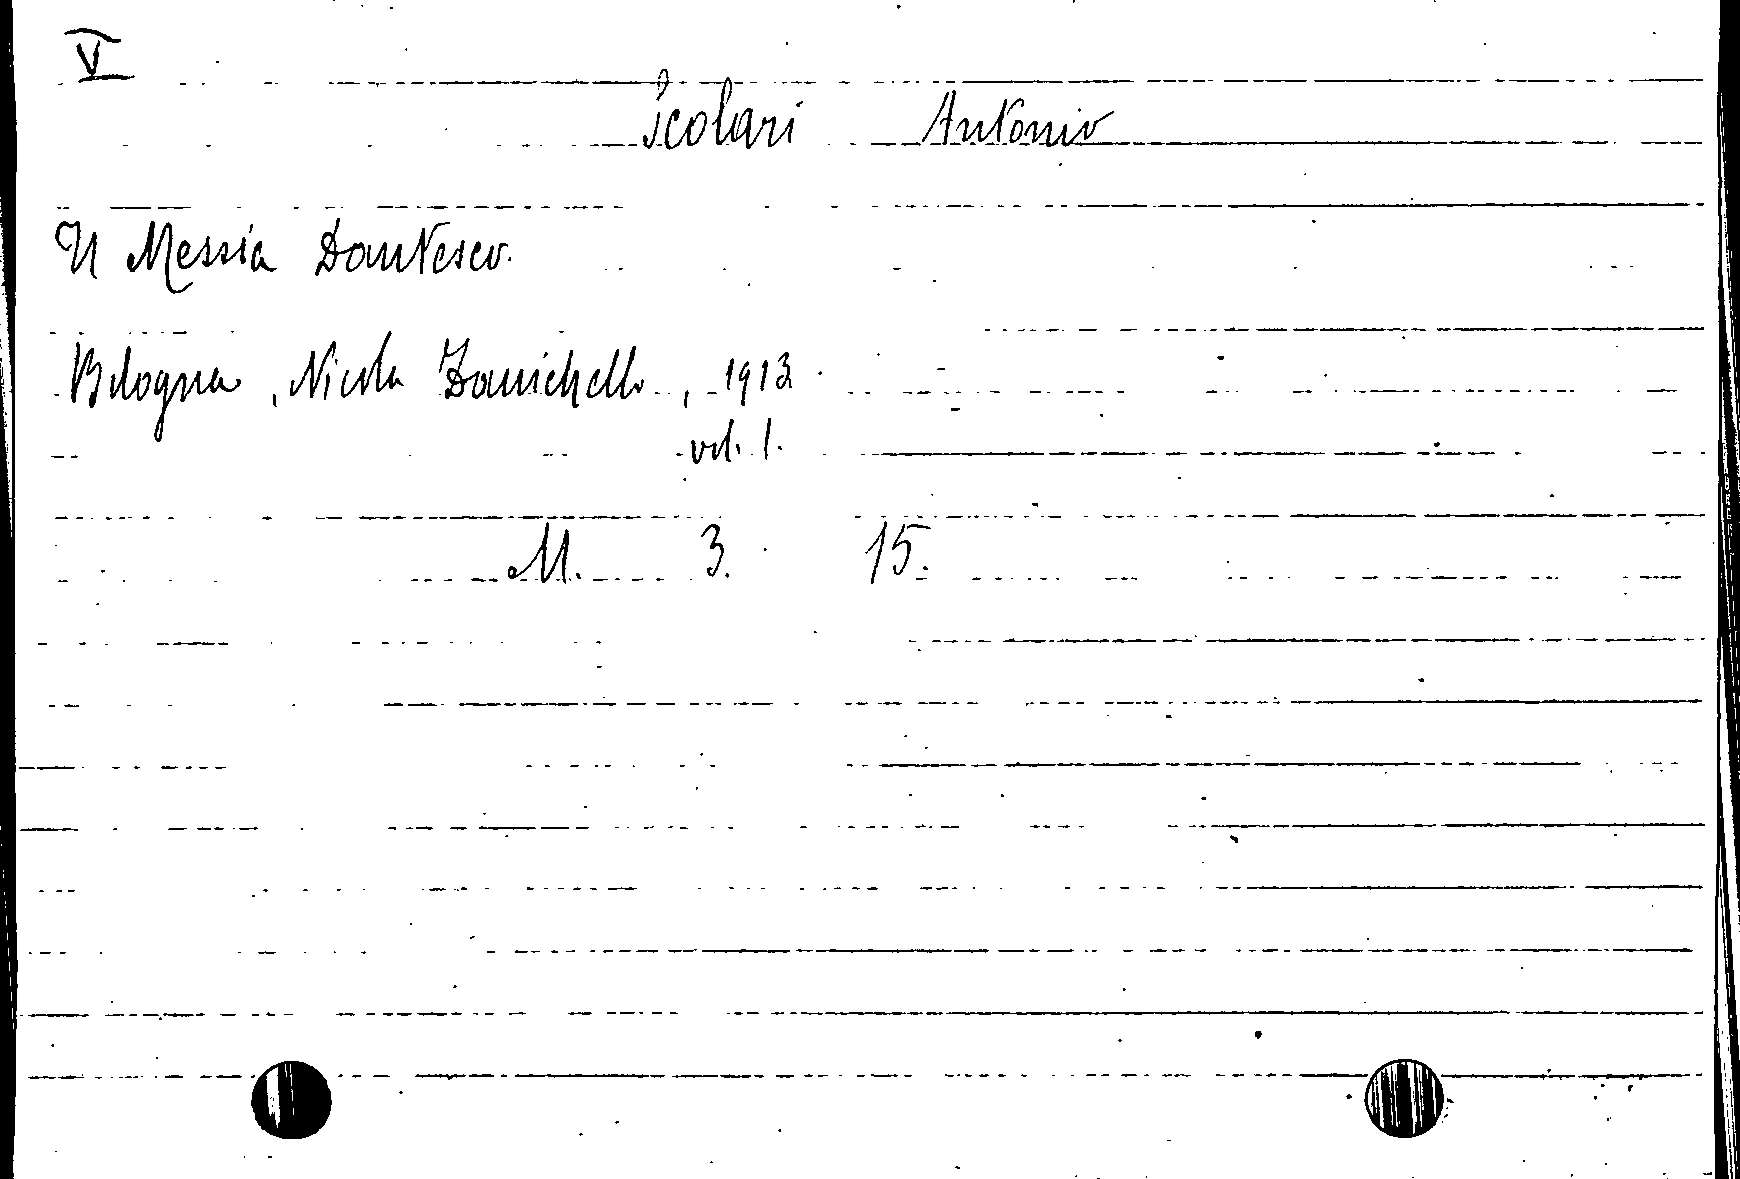 V
Scolari Antonio
Il Messia Dantesco.
Bologna, Nicola Zanichelli, 1913
vol. 1.
M. 3. 15.